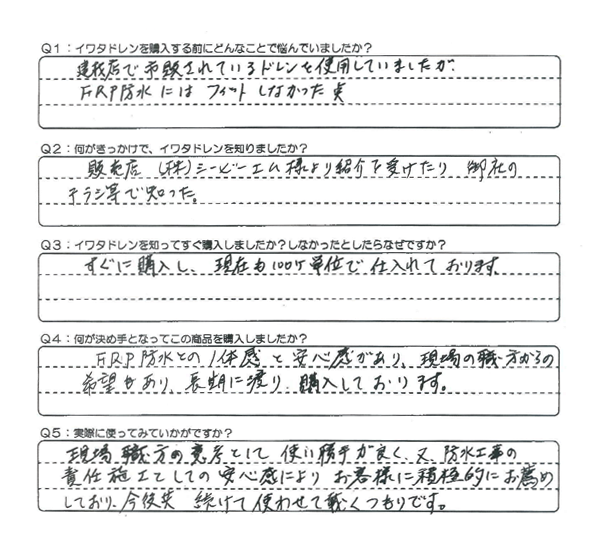 Q1：イワタドレンを購入する前にどんなことで悩んでいましたか？
建材店で市販されているドレンを使用していましたが、
FRP防水には フィットしなかった点
Q2：何がきっかけで、イワタドレンを知りましたか？
販売店 (株)シービーエム様より紹介を受けたり 御社の
チラシ等で知った。
Q3：イワタドレンを知ってすぐ購入しましたか？しなかったとしたらなぜですか？
すぐに購入し、現在も100ケ単位で仕入れております。
Q4：何が決め手となってこの商品を購入しましたか？
FRP防水との1体感と安心感があり、現場の職方からの
希望もあり、長期に渡り、購入しております。
Q5：実際に使ってみていかがですか？
現場職方の意見として 使い勝手が良く、又 防水工事の
責任施工としての安心感により お客様に積極的にお薦め
しており、今後共 続けて使わせて戴くつもりです。